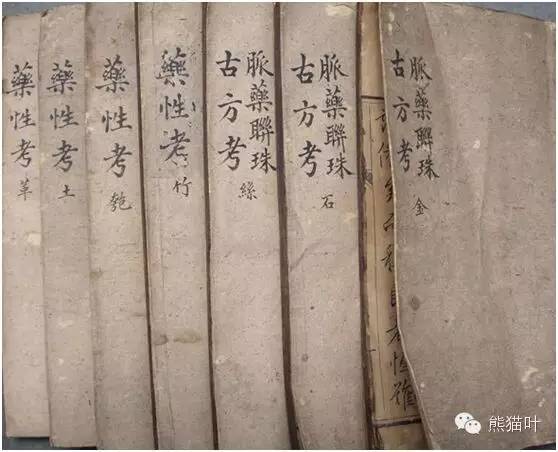 脈藥聯珠
古方考 金
脈藥聯珠
古方考 石
脈藥聯珠
古方考 絲
藥性考 竹
藥性考 匏
藥性考 土
藥性考 革
熊猫叶